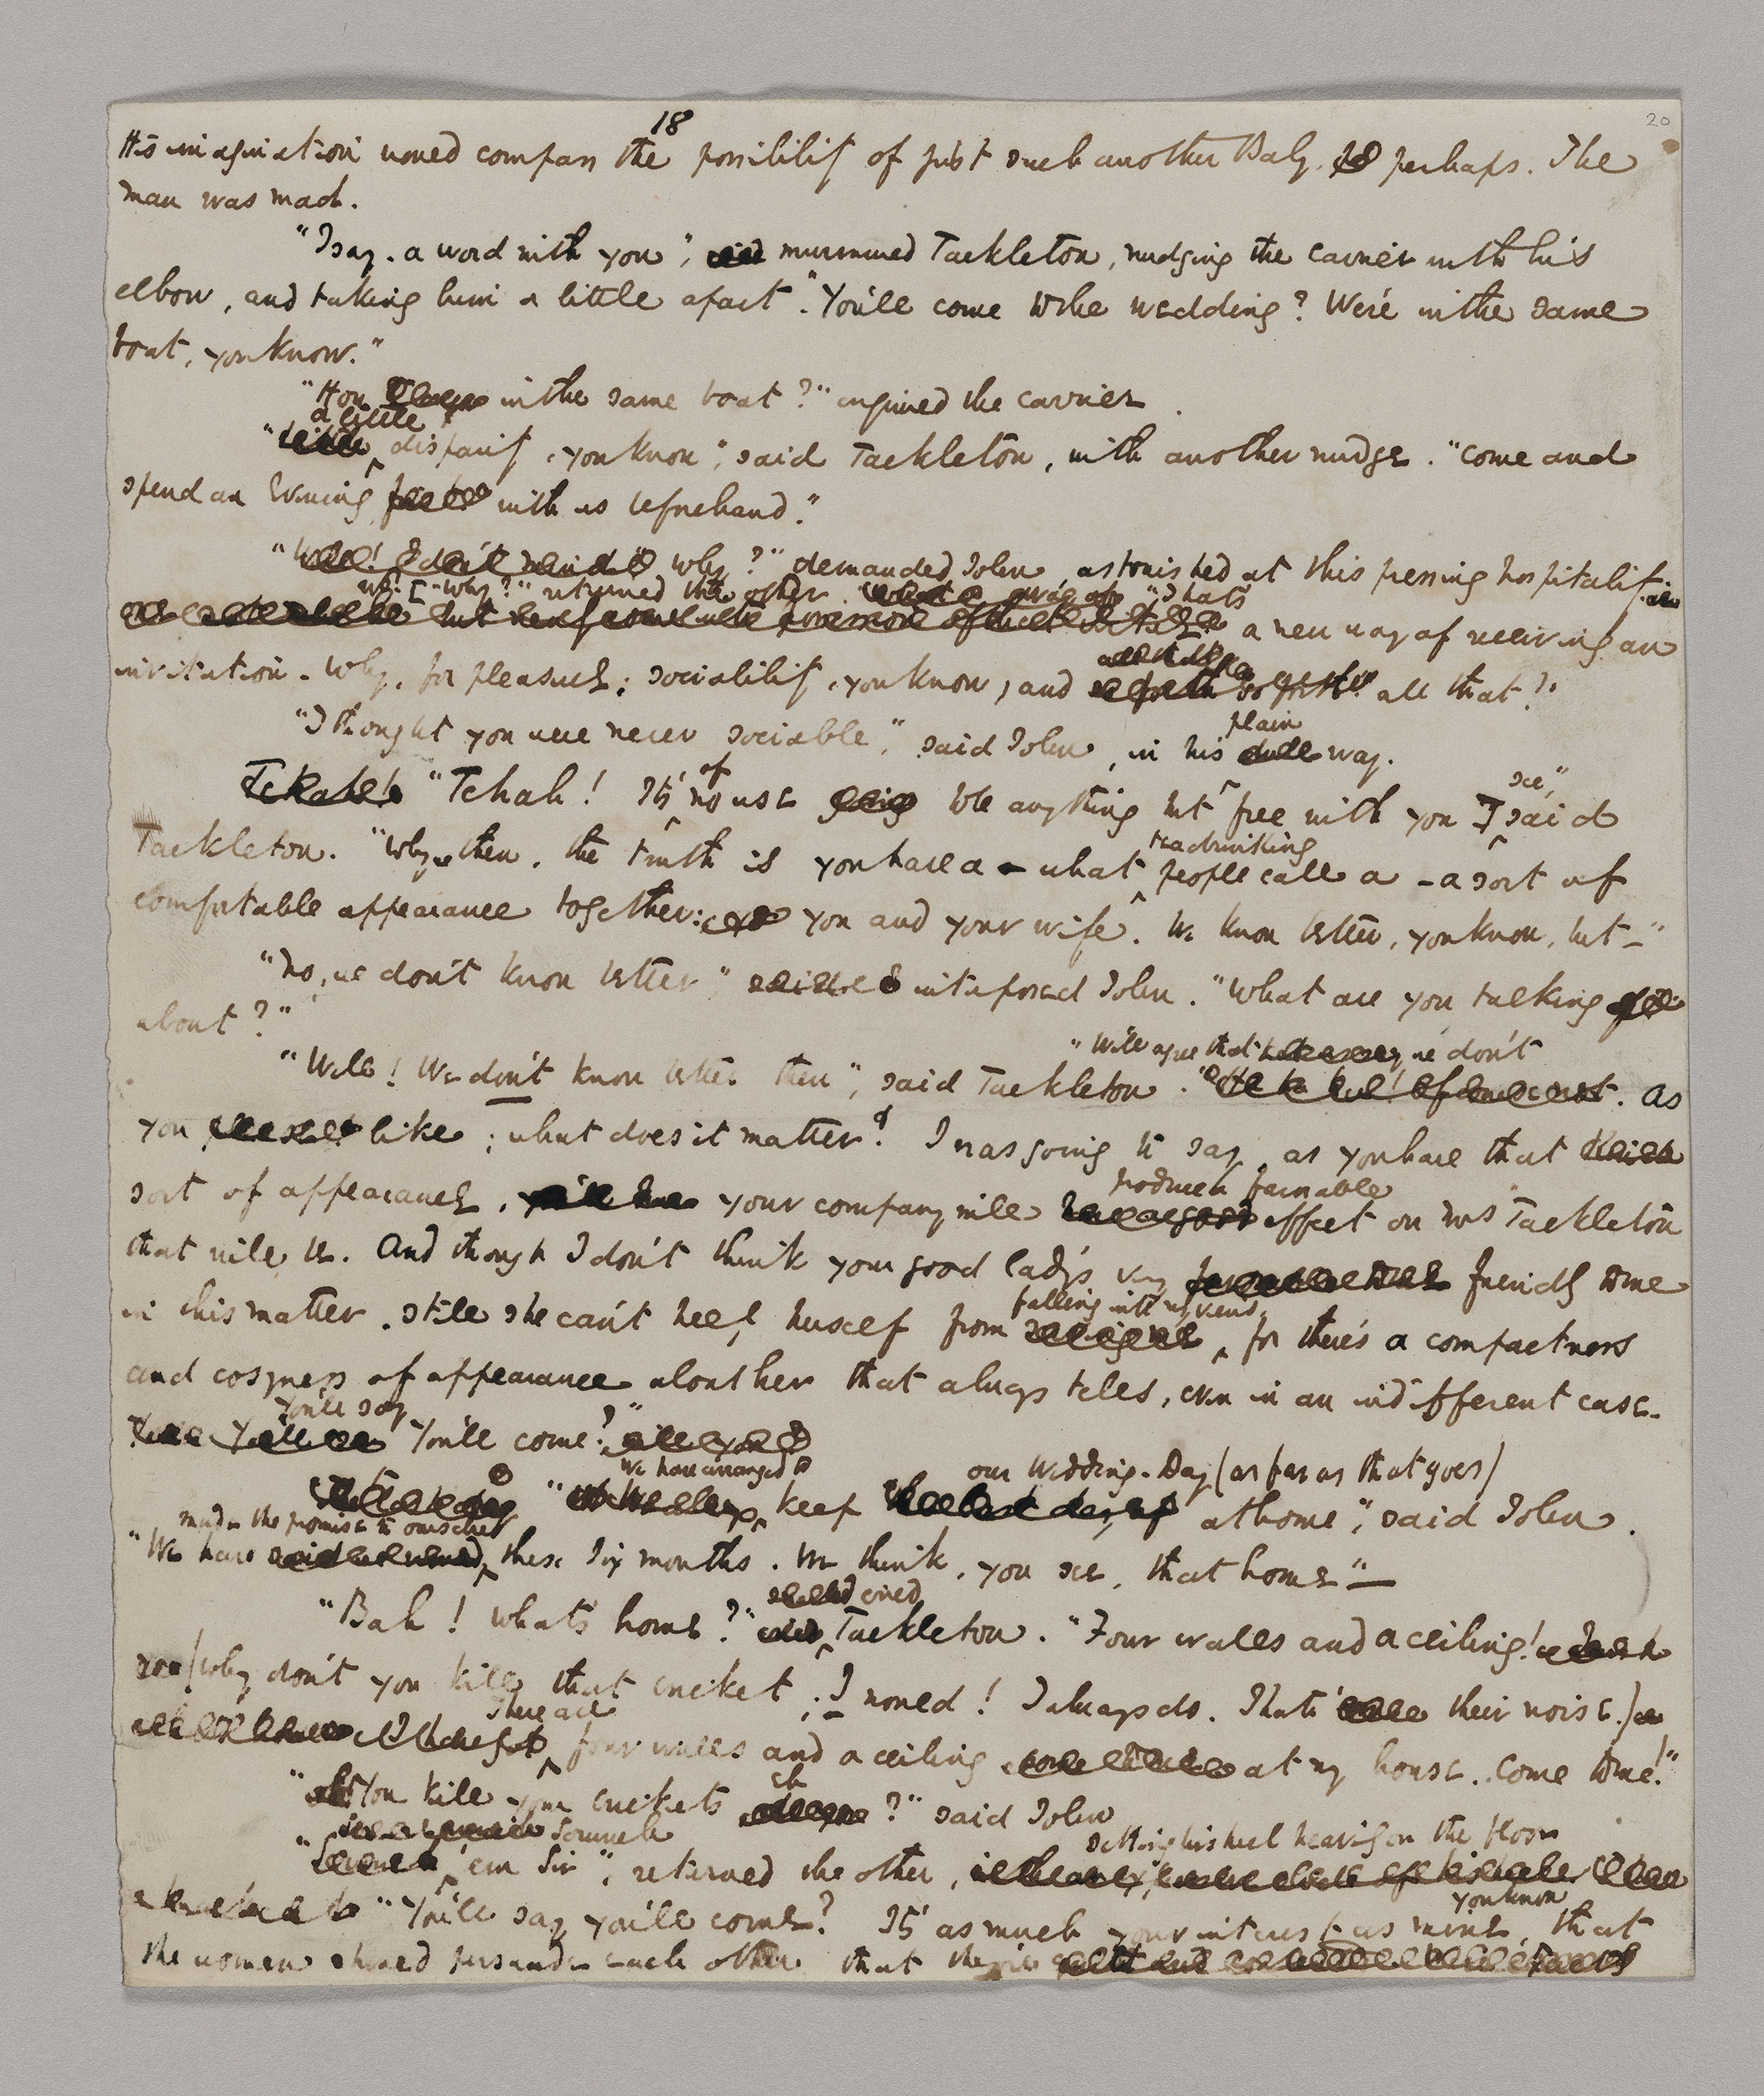 18
20
His imagination would compass the possibility of just such another Baby, perhaps. The
man was mad.
"I say. a word with you", murmured Tackleton, nudging the carrier with his
elbow, and taking him a little apart. "You'll come to the wedding? We're in the same
boat, you know."
"How in the same boat?" inquired the carrier
a little
"disparity, you know", said Tackleton, with another nudge. "Come and
spend an Evening with us beforehand."
"Why?" demanded John, astonished at this pressing hospitality.
"Why?" returned the other. "That's
a new way of receiving an
invitation. Why, for pleasure; sociability, you know, and all that!"
"I thought you were never sociable", said John, in his
plain
way.
"Tchah! It's of no use to be anything but free with you I
see,"
said
Tackleton. "Why, then, the truth is you have a - what
tea drinking
people call a - a sort of
comfortable appearance together: you and your wife. We know better, you know, but -"
"No, we don't know better" interposed John. "What are you talking
about?"
"Well! We don't know better then", said Tackleton.
"We'll agree that we don't
. As
you like; what does it matter? I was going to say, as you have that
sort of appearance, your company will
produce a favorable
effect on Mrs Tackleton
that will be. And though I don't think your good lady's very friendly to me
in this matter, still she can't help herself from
falling into my views,
for there's a compactness
and cosyness of appearance about her that always tells, even in an indifferent case.
You'll say
You'll come?"
"We have arranged to
keep
our Wedding-Day (as far as that goes)
at home", said John.
made the promise to ourselves
"We have these six months. We think, you see, that home" —
"Bah! what's home?"
cried
Tackleton. "Four walls and a ceiling!
(why don't you kill that cricket; I would! I always do. I hate their noise.)
There are
four walls and a ceiling at my house. Come to me!"
"You kill your crickets
eh
?" said John
Scrunch
"'em Sir", returned the other,
setting his heel heavily on the floor
"You'll say you'll come? It's as much your interest as mine,
you know
that
the women should persuade each other that they're